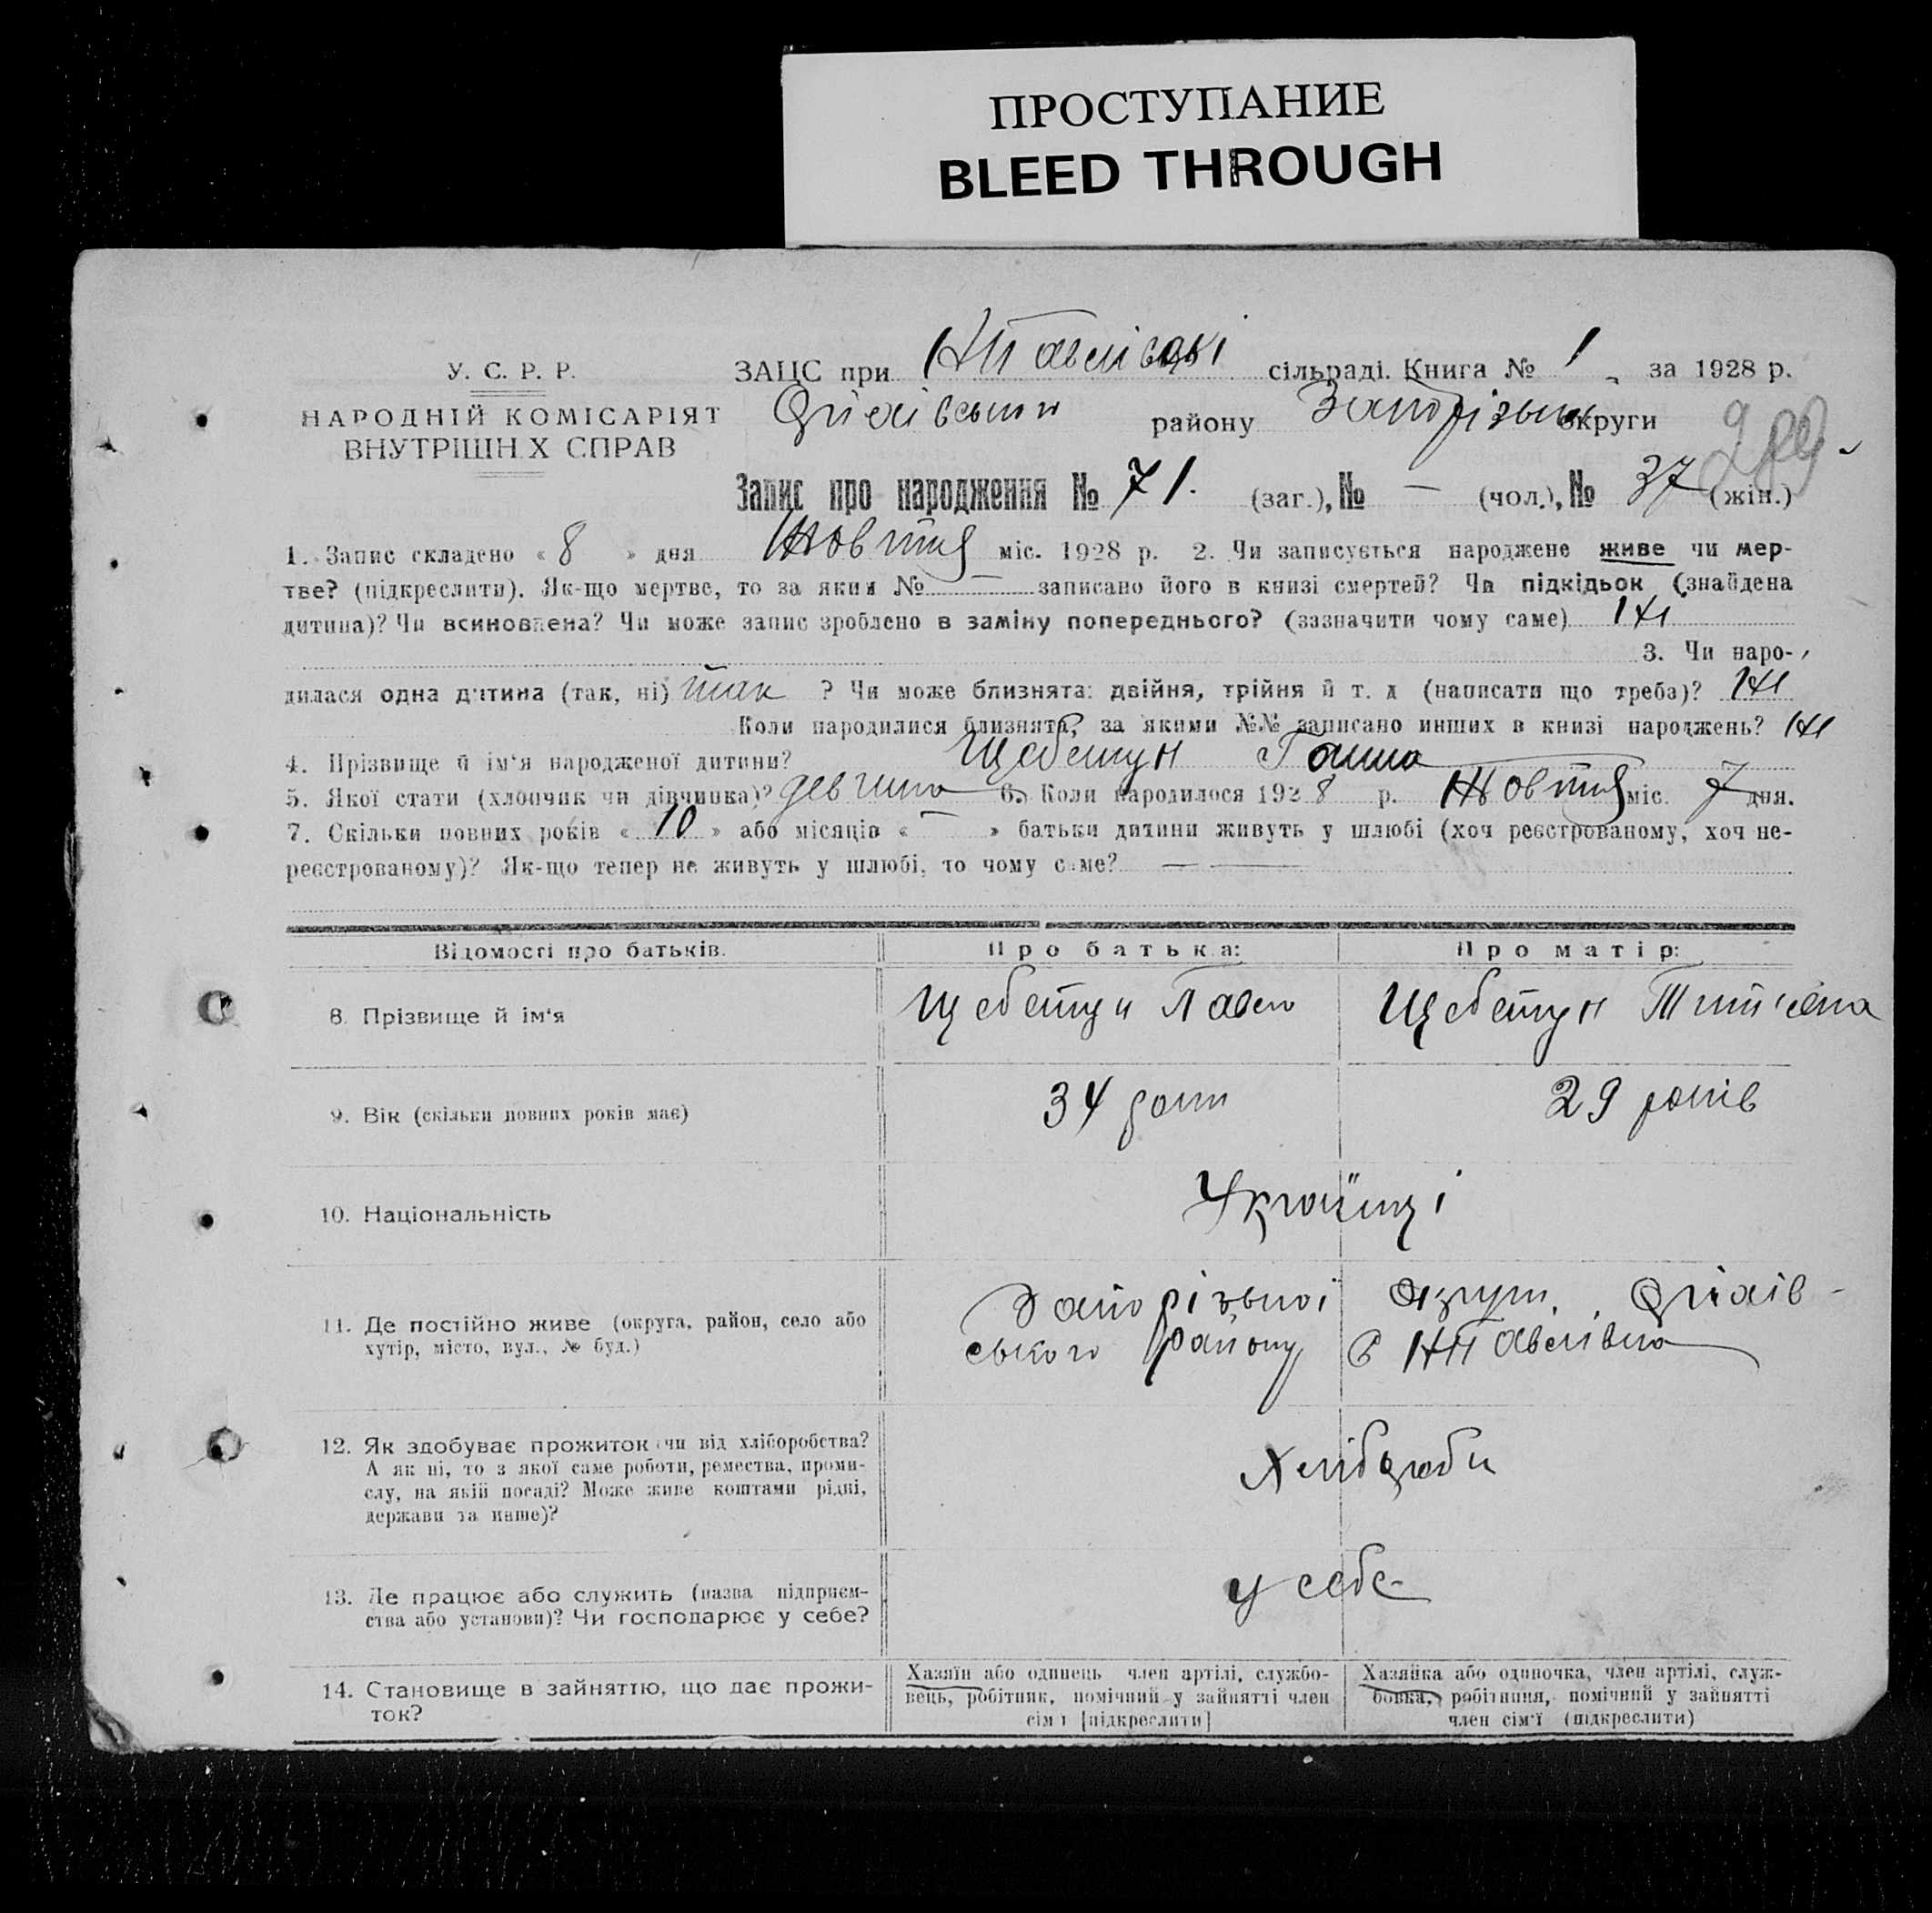 ПРОСТУПАНИЕ
BLEED THROUGH
У. С. Р. Р.
НАРОДНІЙ КОМІСАРІЯТ
ВНУТРІШН Х СПРАВ
ЗАЦС при НПавлівські сільраді. Книга № 1 за 1928 р.
Оріхівський району Запорізьк округи
Запис про народження № 71. (заг.), № — (чол.), № 37 (жін.)
1. Запис складено « 8 » дня Жовтня міс. 1928 р. 2. Чи записується народжене живе чи мер-
тве? (підкреслити). Як-що мертве, то за яким № — записано його в книзі смертей? Чи підкідьок (знайдена
дитина)? Чи всиновлена? Чи може запис зроблено в заміну попереднього? (зазначити чому саме) Ні
3. Чи наро-
дилася одна дитина (так, ні) так ? Чи може близнята: двійня, трійня й т. д (написати що треба)? Ні
Коли народилися близнята, за якими №№ записано инших в книзі народжень? Ні
4. Прізвище й ім'я народженої дитини? Щебетун Ганна
5. Якої стати (хлопчик чи дівчинка)? девчина 6. Коли народилося 1928 р. Жовтня міс. 7 дня.
7. Скільки повних років « 10 » або місяців « — » батьки дитини живуть у шлюбі (хоч реєстрованому, хоч не-
реєстрованому)? Як-що тепер не живуть у шлюбі, то чому саме? — —
Відомості про батьків.
Про батька:
Про матір:
8. Прізвище й ім'я
Щебетун Павло
Щебетун Тит'яна
9. Вік (скільки повних років має)
34 роки
29 років
10. Національність
Українці
11. Де постійно живе (округа, район, село або
хутір, місто, вул., № буд.)
Запорізької округи, Оріхів-
ського району с НПавлівка
12. Як здобуває прожиток (чи від хліборобства?
А як ні, то з якої саме роботи, ремества, проми-
слу, на якій посаді? Може живе коштами рідні,
держави та инше)?
Хлібороби
13. Де працює або служить (назва підприєм-
ства або установи)? Чи господарює у себе?
у себе
14. Становище в зайняттю, що дає прожи-
ток?
Хазяїн або одинець член артілі, службо-
вець, робітник, помічний у зайнятті член
сім'ї [підкреслити]
Хазяйка або одиночка, член артілі, служ-
бовка, робітниця, помічний у зайнятті
член сім'ї (підкреслити)